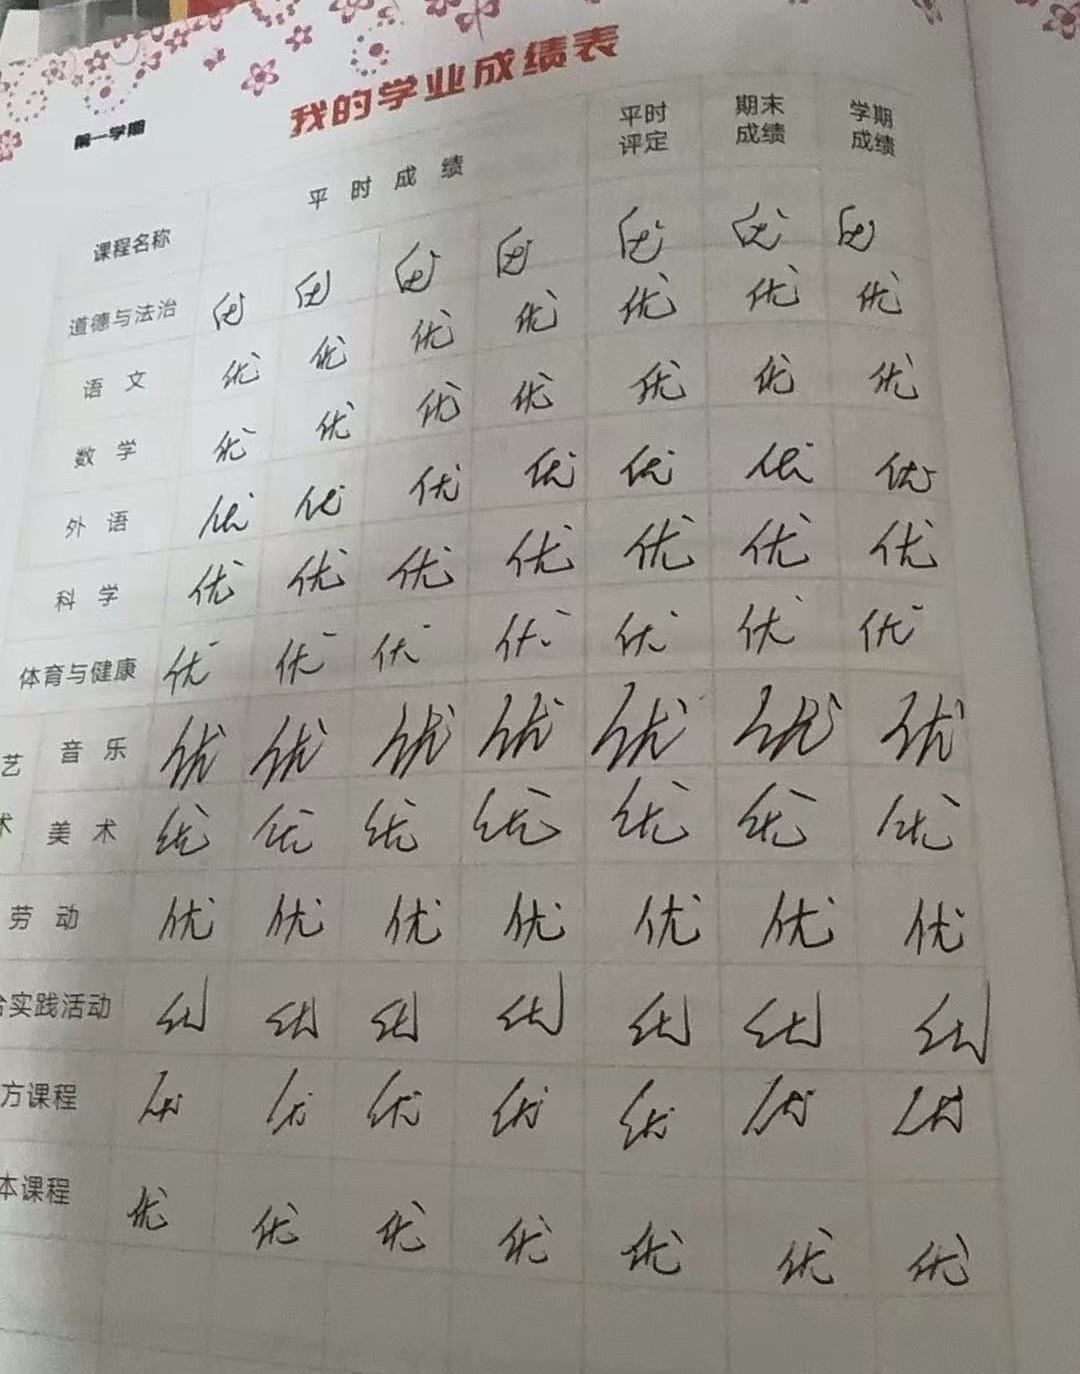 我的学业成绩表
第一学期
课程名称 平时成绩 平时评定 期末成绩 学期成绩
道德与法治 优 优 优 优 优 优 优
语文 优 优 优 优 优 优 优
数学 优 优 优 优 优 优 优
外语 优 优 优 优 优 优 优
科学 优 优 优 优 优 优 优
体育与健康 优 优 优 优 优 优 优
艺 音乐 优 优 优 优 优 优 优
术 美术 优 优 优 优 优 优 优
劳动 优 优 优 优 优 优 优
合实践活动 优 优 优 优 优 优 优
方课程 优 优 优 优 优 优 优
本课程 优 优 优 优 优 优 优